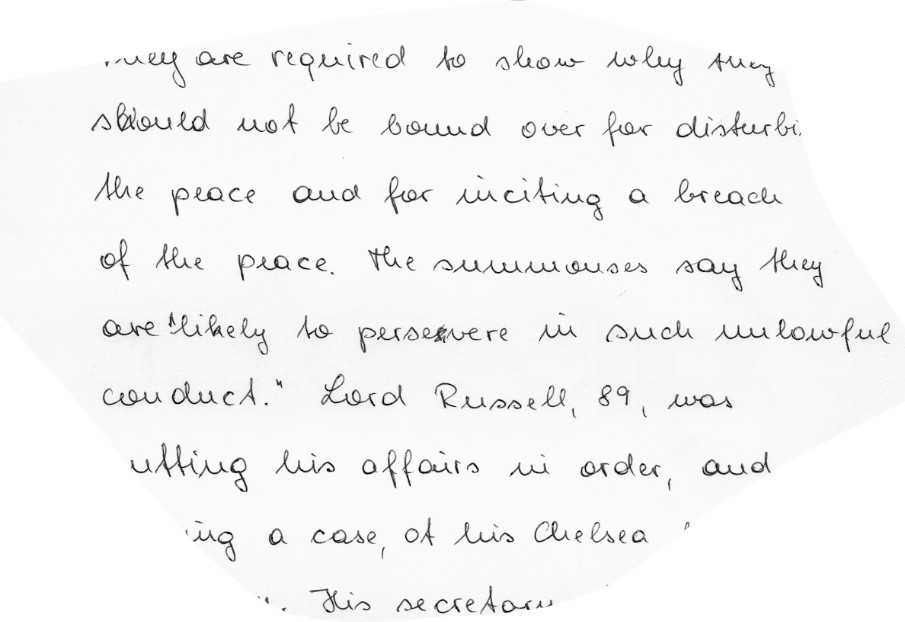 are required to show why they
should not be bound over for
the peace and for inciting a breach
of the peace. The summonses say they
are "likely to persevere in such unlawful
conduct." Lord Russell, 89, was
his affairs in order, and
a case, at his Chelsea
His